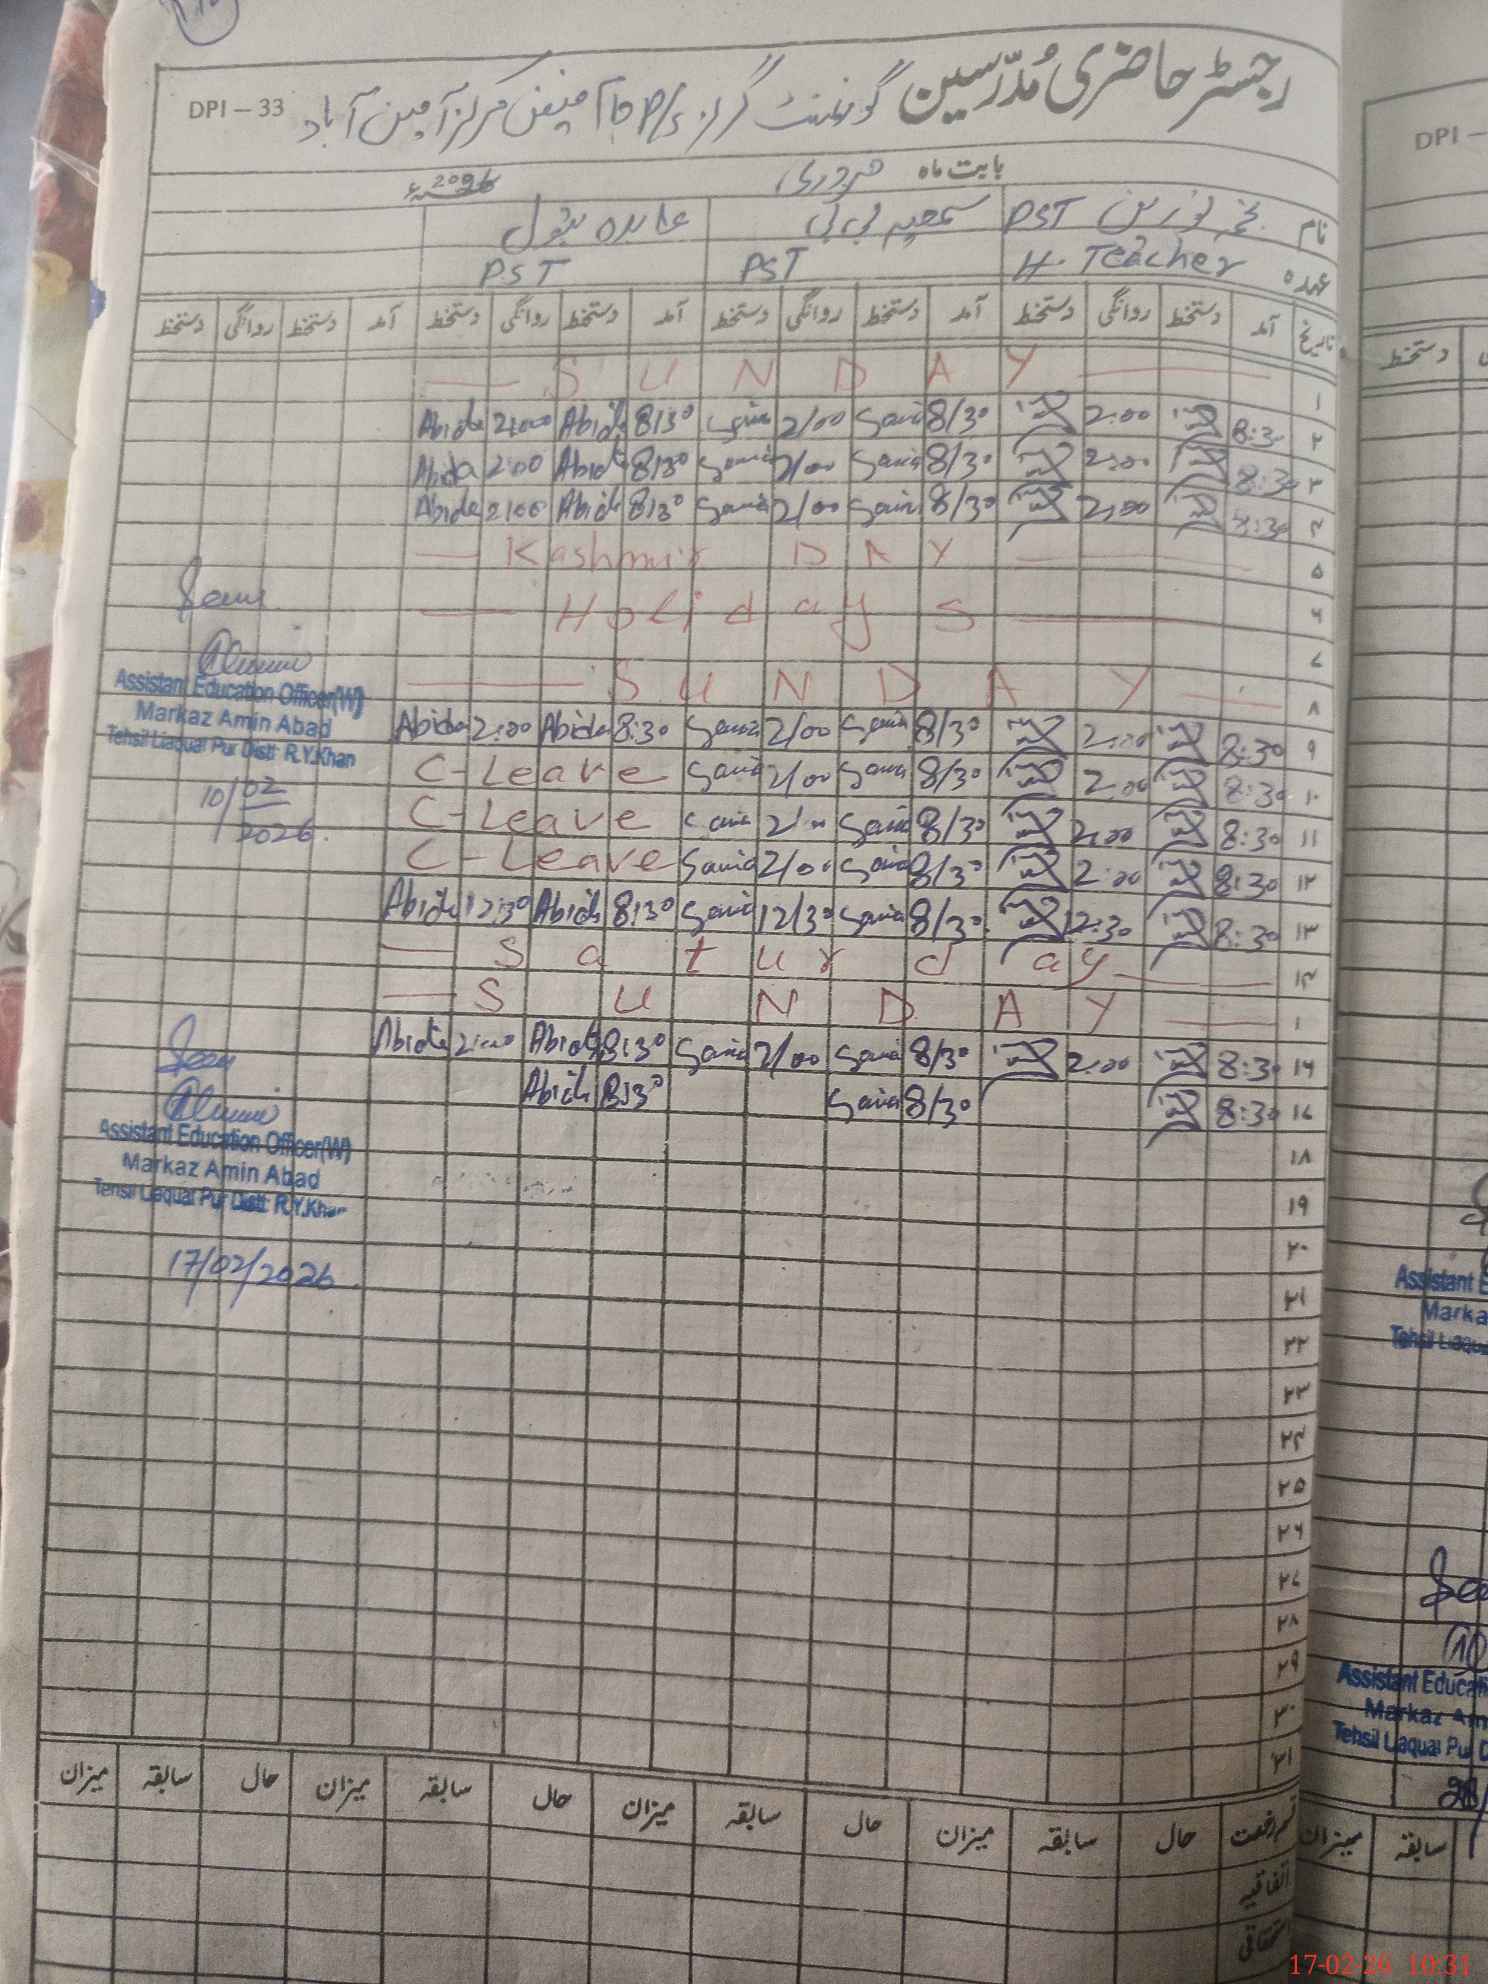 رجسٹر حاضری مُدرّسین گورنمنٹ گرلز P/S آمین آباد
DPI – 33
بابت ماہ فروری 2026ء
نام PST سمعیہ بی بی عابدہ بتول
عہدہ H. Teacher PST PST
تاریخ آمد دستخط روانگی دستخط آمد دستخط روانگی دستخط آمد دستخط روانگی دستخط آمد دستخط روانگی دستخط
۱ — S U N D A Y —
Abida 2:00 Abida 8:30 Samia 2/00 Samia 8/30 2:00 8:30 ۲
Abida 2:00 Abida 8:30 Samia 2/00 Samia 8/30 2:00 8:30 ۳
Abida 2:00 Abida 8:30 Samia 2/00 Samia 8/30 2:00 8:30 ۴
— Kashmir DAY — ۵
— Holidays — ۶
۷
— S U N D A Y — ۸
Abida 2:00 Abida 8:30 Samia 2/00 Samia 8/30 2:00 8:30 ۹
C-Leave Samia 2/00 Samia 8/30 2:00 8:30 ۱۰
C-Leave Samia 2/00 Samia 8/30 2:00 8:30 ۱۱
C-Leave Samia 2/00 Samia 8/30 2:00 8:30 ۱۲
Abida 12:30 Abida 8:30 Samia 12/30 Samia 8/30 12:30 8:30 ۱۳
— S a t u r d a y — ۱۴
— S U N D A Y — ۱
Abida 2:00 Abida 8:30 Samia 2/00 Samia 8/30 2:00 8:30 ۱۶
Abida 8:30 Samia 8/30 8:30 ۱۷
۱۸
۱۹
۲۰
۲۱
۲۲
۲۳
۲۴
۲۵
۲۶
۲۷
۲۸
۲۹
۳۰
۳۱
Seen
Assistant Education Officer(W)
Markaz Amin Abad
Tehsil Liaquat Pur Distt: R.Y.Khan
10/02/2026.
Seen
Assistant Education Officer(W)
Markaz Amin Abad
Tehsil Liaquat Pur Distt: R.Y.Khan
17/02/2026
قسم رخصت حال سابقہ میزان حال سابقہ میزان حال سابقہ میزان حال سابقہ میزان
اتفاقیہ
استحقاقی
DPI –
دستخط
Assistant E
Marka
Tehsil Liaqua
See
Assistant Educati
Markaz Am
Tehsil Liaquat Pur D
میزان سابقہ
17-02-26 10:31